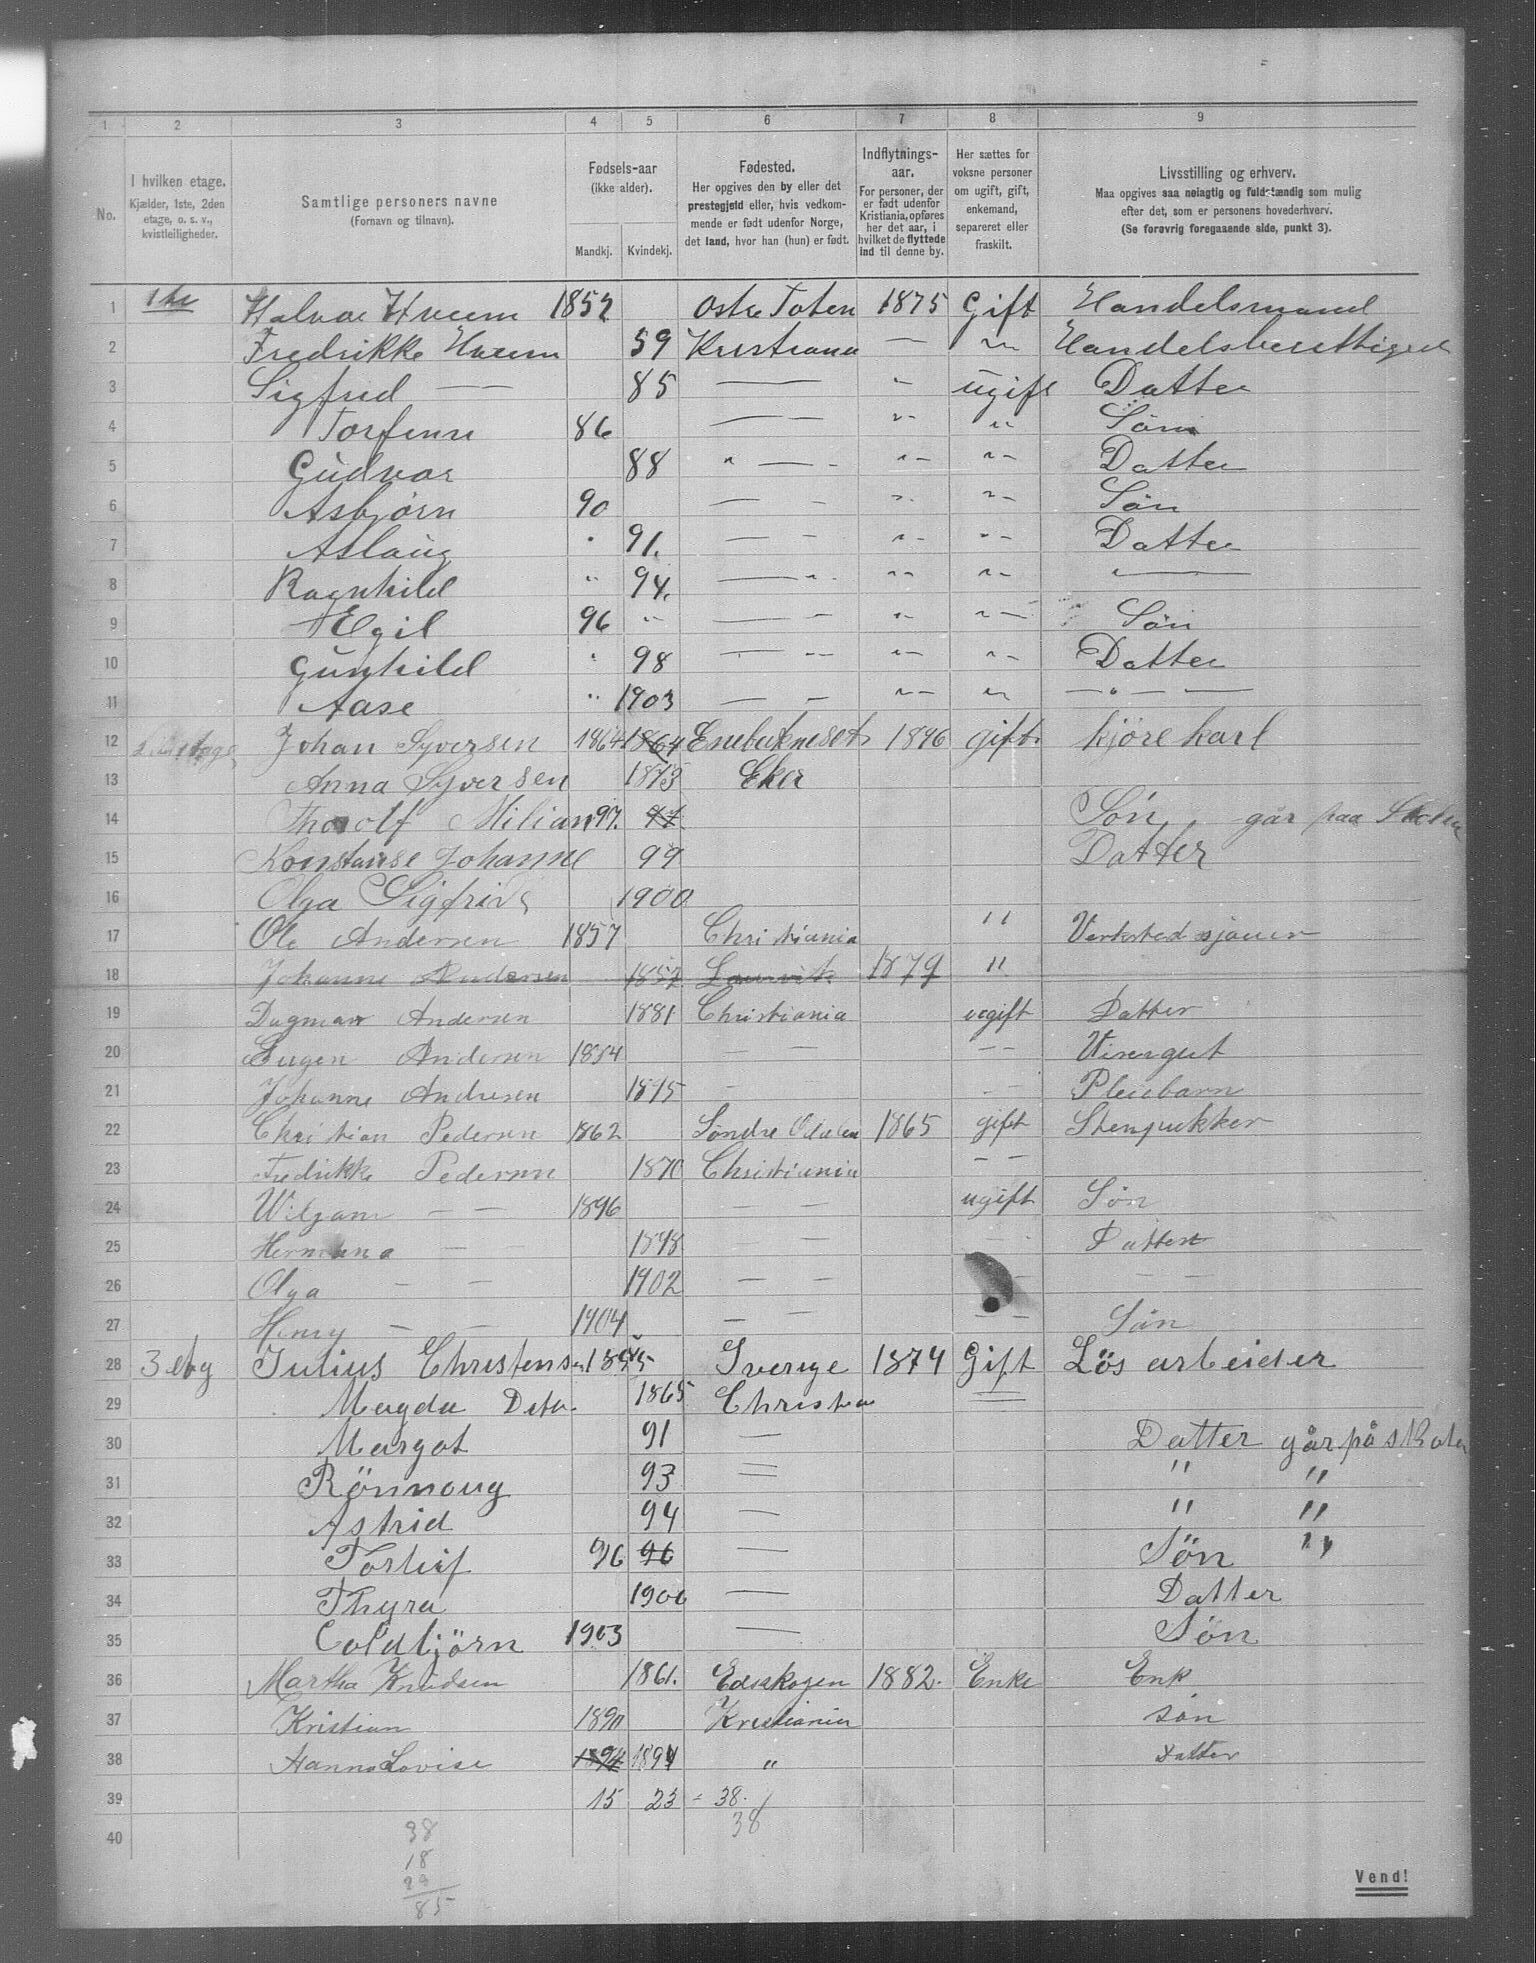 1 2 3 4 5 6 7 8 9
No. I hvilken etage. Kjælder, 1ste, 2den etage, o. s. v., kvistleiligheder. Samtlige personers navne (Fornavn og tilnavn). Fødsels-aar (ikke alder). Mandkj. Kvindekj. Fødested. Her opgives den by eller det prestegjeld eller, hvis vedkommende er født udenfor Norge, det land, hvor han (hun) er født. Indflytningsaar. For personer, der er født udenfor Kristiania, opføres her det aar, i hvilket de flyttede ind til denne by. Her sættes for voksne personer om ugift, gift, enkemand, separeret eller fraskilt. Livsstilling og erhverv. Maa opgives saa nøiagtig og fuldstændig som mulig efter det, som er personens hovederhverv. (Se forøvrig foregaaende side, punkt 3).
1 1ste Halvor Hveem 1852 Ostre Toten 1875 Gift Handelsmand
2 Fredrikke Hveem 59 Kristiania — „ Handelsberettiget
3 Sigfred — 85 — „ ugift Datter
4 Torfinn 86 — „ „ Søn
5 Gudvor 88 „ — „ „ Datter
6 Asbjørn 90 — „ „ Søn
7 Aslaug 91. — „ „ Datter
8 Ragnhild „ 94. — „ „ „ —
9 Egil 96 „ — „ „ Søn
10 Gunhild 98 — „ „ Datter
11 Aase „ 1903 — „ „ — „ —
12 Johan Syversen 1864 1864 1896 gift kjøre karl
13 Anna Syversen 1873 Eker
14 Thorolf Milian 97. 97 Søn går paa Skolen
15 Konstanse Johanne 99 Datter
16 Olga Sigfrid 1900
17 Ole Andersen 1857 Christiania " Verksted sjouer
18 Johanne Andersen 1857 Laurvik 1879 "
19 Dagmar Andersen 1881 Christiania ugift Datter
20 Eugen Andersen 1884 — — — — Visergut
21 Johanne Andresen 1895 — — Pleiebarn
22 Christian Pedersen 1862 Søndre Odalen 1865 gift Stenpukker
23 Fredrikke Pedersen 1870 Christiania — —
24 Wiljam — — 1896 — — ugift Søn
25 Hermana — 1898 — — — Datter
26 Olga — — 1902 — — — — —
27 Henry — — 1904 — — — — Søn
28 3 etg Julius Christensen Sverige 1874 Gift Lös arbeider
29 Magda Deto 1865 Christia =
30 Margot 91 — Datter går på skolen
31 Rönnoug 93 = " "
32 Astrid 94 — " "
33 Torleif 96 96 — Sön "
34 Thyra 1900 — Datter
35 Coldbjörn 1903 — Sön
36 Martha Knudsen 1861. Edsskogen 1882. Enke Enk
37 Kristian 1890 Kristiania søn
38 Hanna Lovise 1894 1894 " Datter
39 15 23 = 38.
40 38
38
18
29
85
Vend!